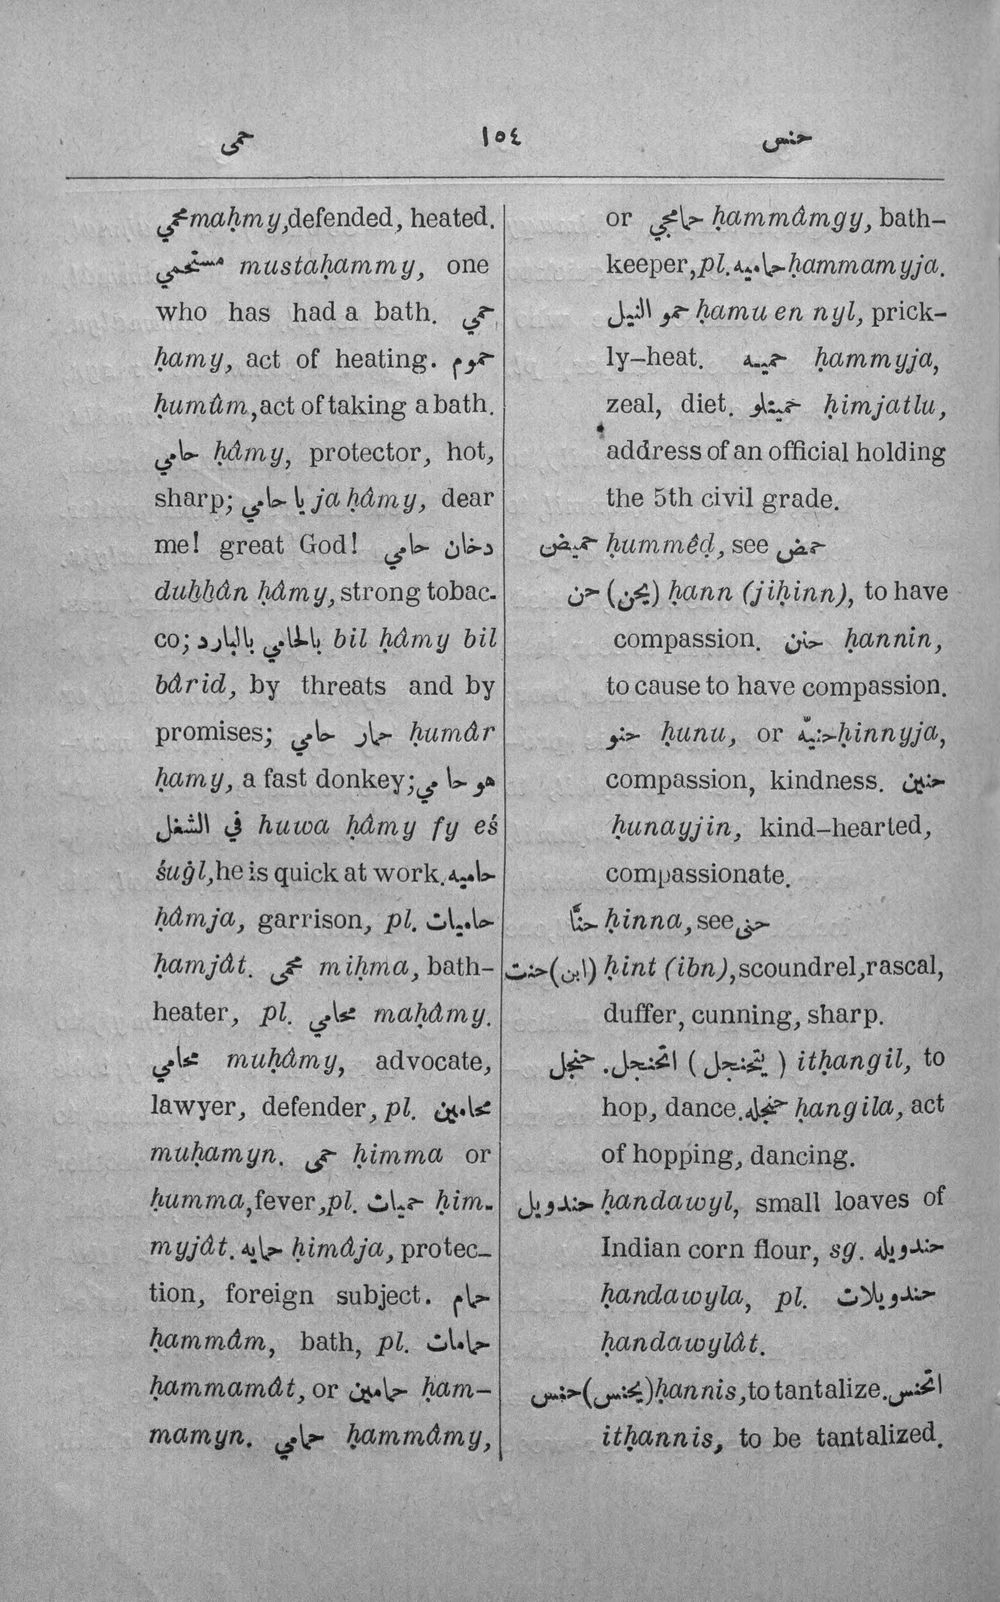 حمى ١٥٤ حنس
محمي maḥmy, defended, heated.
مستحمي mustaḥammy, one
who has had a bath. حمي
ḥamy, act of heating. حموم
ḥumûm, act of taking a bath.
حامي ḥâmy, protector, hot,
sharp; يا حامي ja ḥâmy, dear
me! great God! دخان حامي
duḫḫân ḥâmy, strong tobac-
co; بالحامي بالبارد bil ḥâmy bil
bârid, by threats and by
promises; حمار حامي ḥumâr
ḥamy, a fast donkey; هو حامي
في الشغل huwa ḥâmy fy eś
śuġl, he is quick at work. حاميه
ḥâmja, garrison, pl. حاميات
ḥamjât. محمى miḥma, bath-
heater, pl. محامي maḥâmy.
محامي muḥâmy, advocate,
lawyer, defender, pl. محامين
muḥamyn. حمى ḥimma or
ḥumma, fever, pl. حميات ḥim-
myjât. حمايه ḥimâja, protec-
tion, foreign subject. حمام
ḥammâm, bath, pl. حمامات
ḥammamât, or حمامين ḥam-
mamyn. حمامي ḥammâmy,
or حمامجي ḥammâmgy, bath-
keeper, pl. حماميه ḥammamyja.
حمو النيل ḥamu en nyl, prick-
ly-heat. حميه ḥammyja,
zeal, diet. حميتلو ḥimjatlu,
address of an official holding
the 5th civil grade.
حميض ḥummêḍ, see حمض
حن (يحن) ḥann (jiḥinn), to have
compassion. حنن ḥannin,
to cause to have compassion.
حنو ḥunu, or حنيّه ḥinnyja,
compassion, kindness. حنين
ḥunayjin, kind-hearted,
compassionate.
حنّا ḥinna, see حنى
حنت (ابن) ḥint (ibn), scoundrel, rascal,
duffer, cunning, sharp.
حنجل. اتحنجل (يتحنجل) itḥangil, to
hop, dance. حنجله ḥangila, act
of hopping, dancing.
حندويل ḥandawyl, small loaves of
Indian corn flour, sg. حندويله
ḥandawyla, pl. حندويلات
ḥandawylât.
حنس (يحنس) ḥannis, to tantalize. اتحنس
itḥannis, to be tantalized.